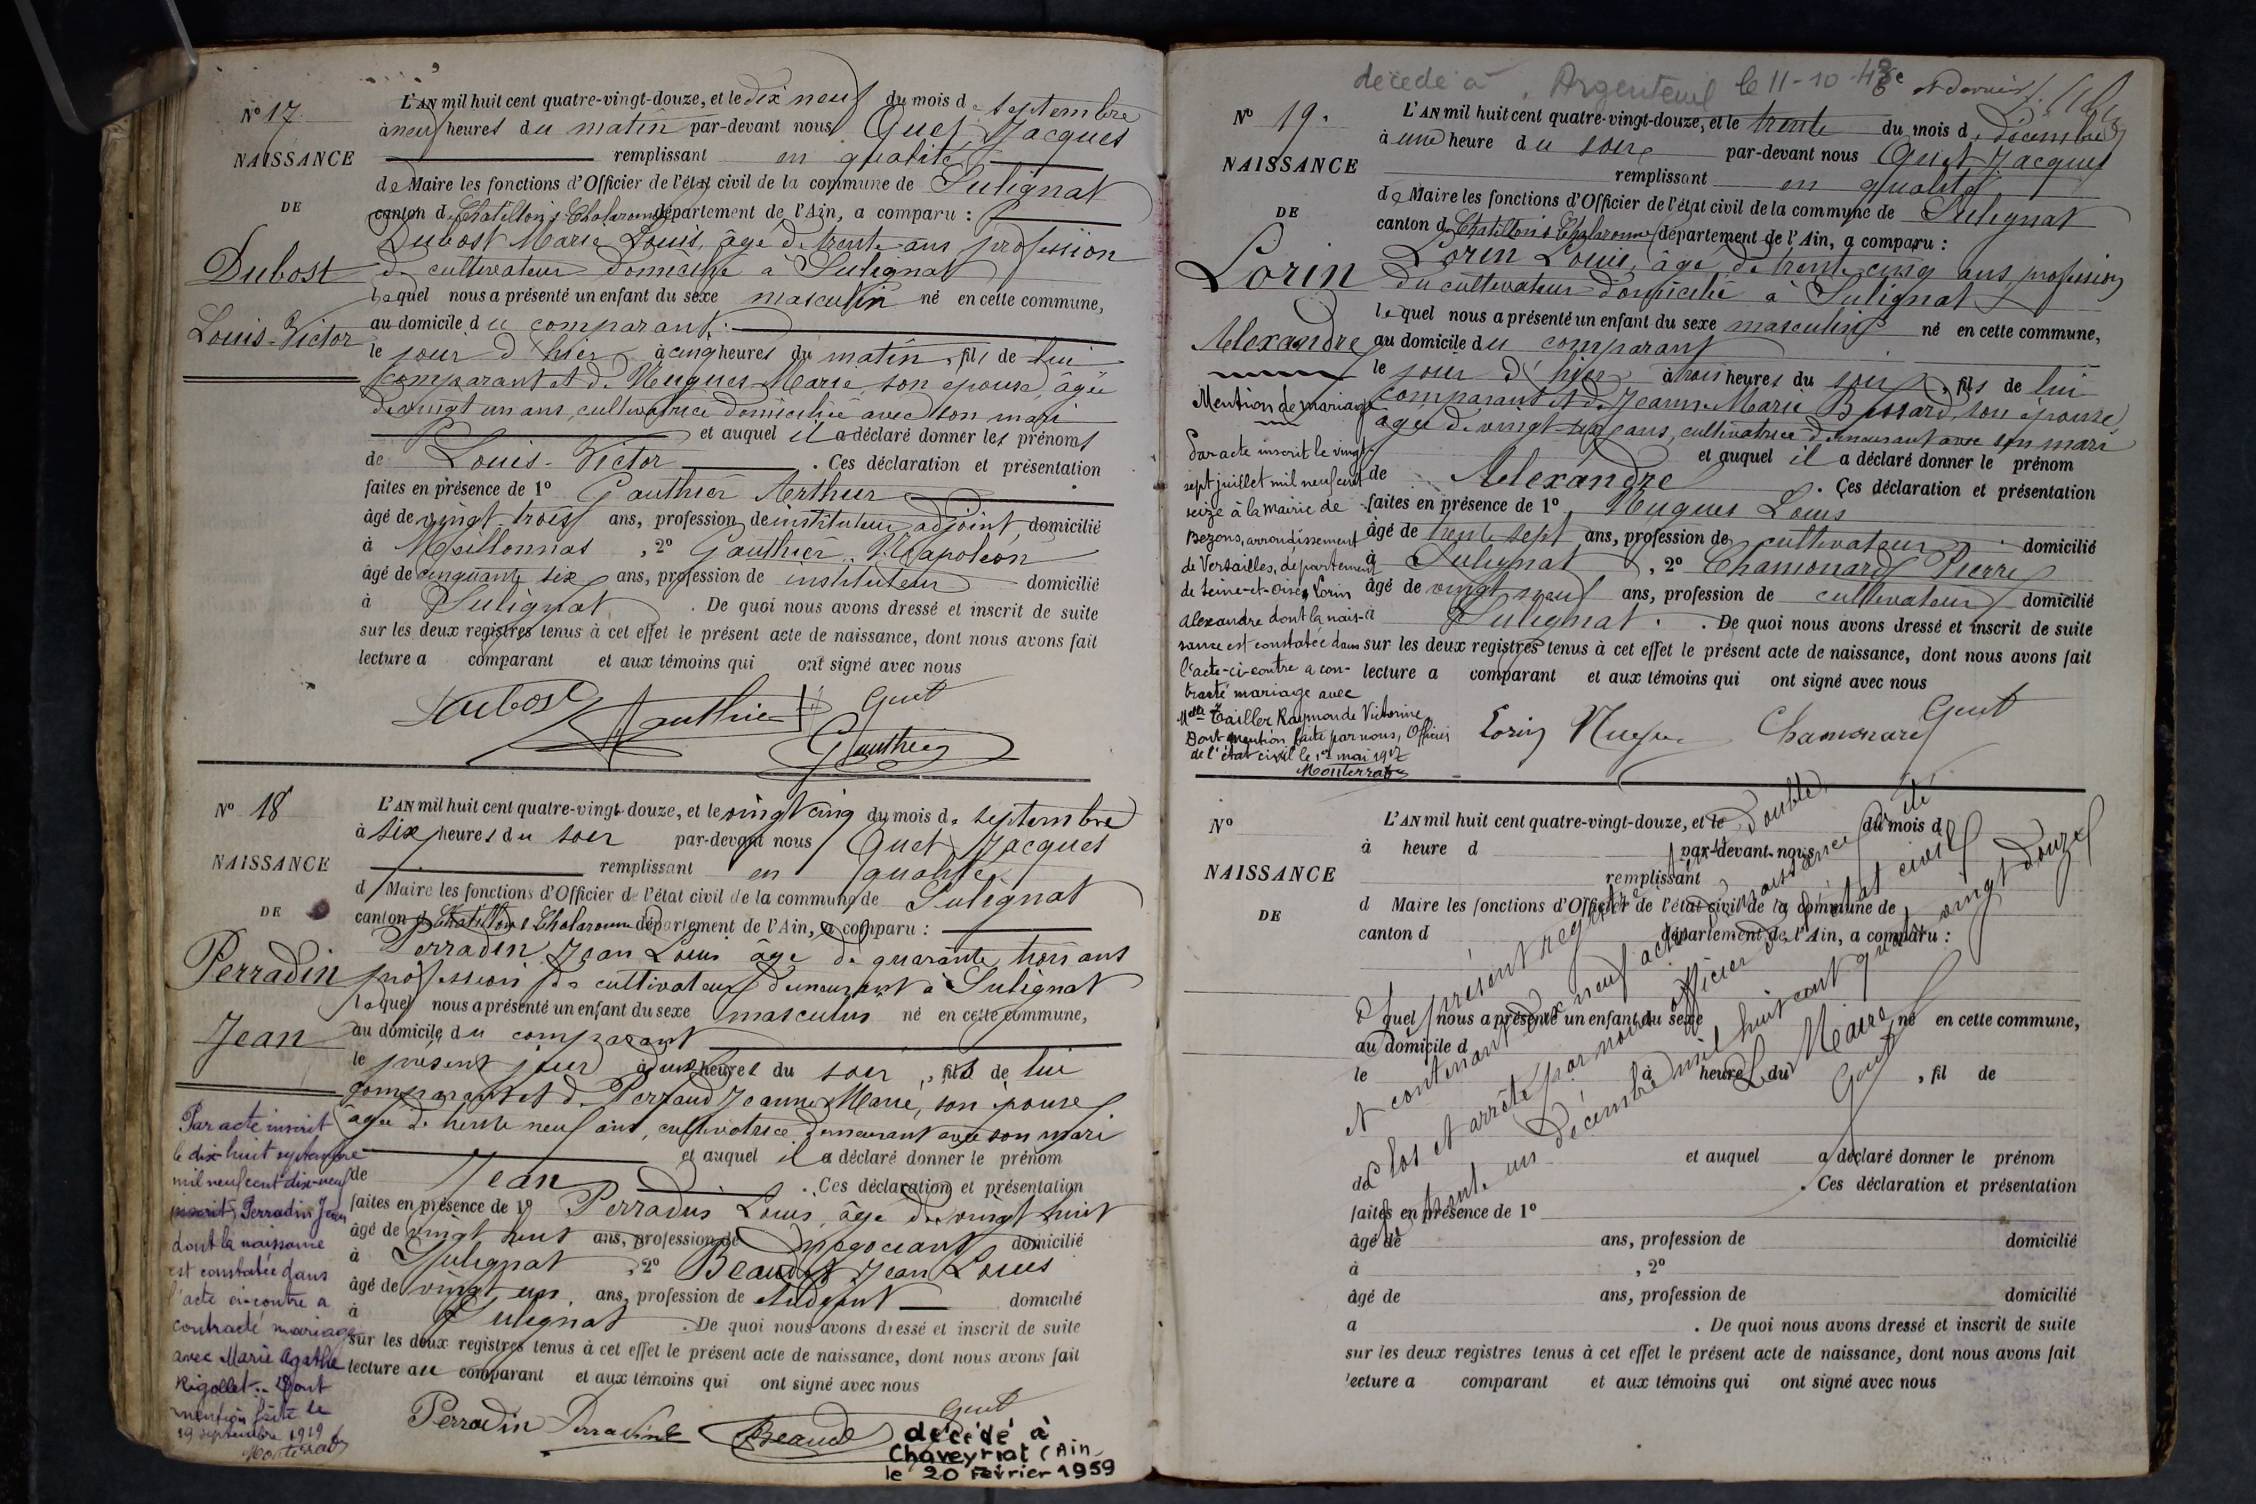 N° 17
NAISSANCE
DE
Dubost
Louis-Victor
L'AN mil huit cent quatre-vingt-douze, et le dix neuf du mois de septembre
à neuf heures du matin par-devant nous Quet Jacques
remplissant en qualité
de Maire les fonctions d'Officier de l'état civil de la commune de Sulignat
canton de Chatillon s Chalaronne département de l'Ain, a comparu :
Dubost Marie Louis, âgé de trente ans profession
de cultivateur domicilié à Sulignat
lequel nous a présenté un enfant du sexe masculin né en cette commune,
au domicile du comparant
le jour d'hier à cinq heures du matin, fils de lui
comparant et de Nugues Marie son épouse, âgée
de vingt un ans, cultivatrice domiciliée avec son mari
et auquel il a déclaré donner les prénoms
de Louis-Victor . Ces déclaration et présentation
faites en présence de 1° Gauthier Arthur
âgé de vingt trois ans, profession de instituteur adjoint domicilié
à Meillonnas , 2° Gauthier Napoléon
âgé de cinquante six ans, profession de instituteur domicilié
à Sulignat . De quoi nous avons dressé et inscrit de suite
sur les deux registres tenus à cet effet le présent acte de naissance, dont nous avons fait
lecture a comparant et aux témoins qui ont signé avec nous
Dubost Gauthier Quet
Gauthier
N° 18
NAISSANCE
DE
Perradin
Jean
L'AN mil huit cent quatre-vingt-douze, et le vingt cinq du mois de septembre
à six heures du soir par-devant nous Quet Jacques
remplissant en qualité
d Maire les fonctions d'Officier de l'état civil de la commune de Sulignat
canton d Chatillon s Chalaronne département de l'Ain, a comparu :
Perradin Jean Louis âgé de quarante trois ans
profession de cultivateur demeurant à Sulignat
lequel nous a présenté un enfant du sexe masculin né en cette commune,
au domicile du comparant
le présent jour à heures du soir, fils de lui
comparant et de Perraud Jeanne Marie, son épouse
âgée de trente neuf ans, cultivatrice demeurant avec son mari
et auquel il a déclaré donner le prénom
de Jean . Ces déclaration et présentation
faites en présence de 1° Perradin Louis, âgé de vingt huit
âgé de vingt huit ans, profession de négociant domicilié
à Sulignat , 2° Beaudet Jean Louis
âgé de vingt un ans, profession de étudiant domicilié
à Sulignat . De quoi nous avons dressé et inscrit de suite
sur les deux registres tenus à cet effet le présent acte de naissance, dont nous avons fait
lecture au comparant et aux témoins qui ont signé avec nous
Perradin Perradin Beaud Quet
décédé à
Chaveyriat (Ain
le 20 Février 1959
Par acte inscrit
le dix-huit septembre
mil neuf cent dix-neuf
inscrit Perradin Jean
dont la naissance
est constatée dans
l'acte ci-contre a
contracté mariage
avec Marie Agathe
Rigollet.. Dont
mention faite le
19 septembre 1919
Monterrat
décédé à Argenteuil le 11-10-48
et dernier
N° 19.
NAISSANCE
DE
Lorin
Alexandre
L'AN mil huit cent quatre-vingt-douze, et le trente du mois de décembre
à une heure du soir par-devant nous Quet Jacques
remplissant en qualité
de Maire les fonctions d'Officier de l'état civil de la commune de Sulignat
canton de Chatillon s Chalaronne département de l'Ain, a comparu :
Lorin Louis, âgé de trente cinq ans, profession
du cultivateur domicilié à Sulignat
lequel nous a présenté un enfant du sexe masculin né en cette commune,
au domicile du comparant
le jour d'hier à trois heures du soir, fils de lui
comparant et de Jeanne Marie Bossard, son épouse,
âgée de vingt ans, cultivatrice demeurant avec son mari
et auquel il a déclaré donner le prénom
de Alexandre . Ces déclaration et présentation
faites en présence de 1° Nugues Louis
âgé de trente sept ans, profession de cultivateur domicilié
à Sulignat , 2° Chamonard Pierre
âgé de vingt neuf ans, profession de cultivateur domicilié
à Sulignat . De quoi nous avons dressé et inscrit de suite
sur les deux registres tenus à cet effet le présent acte de naissance, dont nous avons fait
lecture a comparant et aux témoins qui ont signé avec nous
Lorin Nugues Chamonard Quet
Mention de mariage
Par acte inscrit le vingt
sept juillet mil neuf cent
seize à la Mairie de
Bezons, arrondissement
de Versailles, département
de Seine-et-Oise, Lorin
Alexandre dont la nais-
sance est constatée dans
l'acte-ci-contre a con-
tracté mariage avec
Melle Tailler Raymonde Victorine
Dont mention faite par nous, Officier
de l'état civil le 1er mai 1917
Monterrat
N°
NAISSANCE
DE
L'AN mil huit cent quatre-vingt-douze, et le du mois d
à heure d par-devant nous
remplissant
d Maire les fonctions d'Officier de l'état civil de la commune de
canton d département de l'Ain, a comparu :
l quel nous a présenté un enfant du sexe né en cette commune,
au domicile d
le à heure du , fil de
et auquel a déclaré donner le prénom
de . Ces déclaration et présentation
faites en présence de 1°
âgé de ans, profession de domicilié
à , 2°
âgé de ans, profession de domicilié
a . De quoi nous avons dressé et inscrit de suite
sur les deux registres tenus à cet effet le présent acte de naissance, dont nous avons fait
lecture a comparant et aux témoins qui ont signé avec nous
présent registre double
et contenant dix neuf actes de naissances
clos et arrêté par nous officier de l'état civil
le trente un décembre mil huit cent quatre vingt douze
Le Maire
Quet